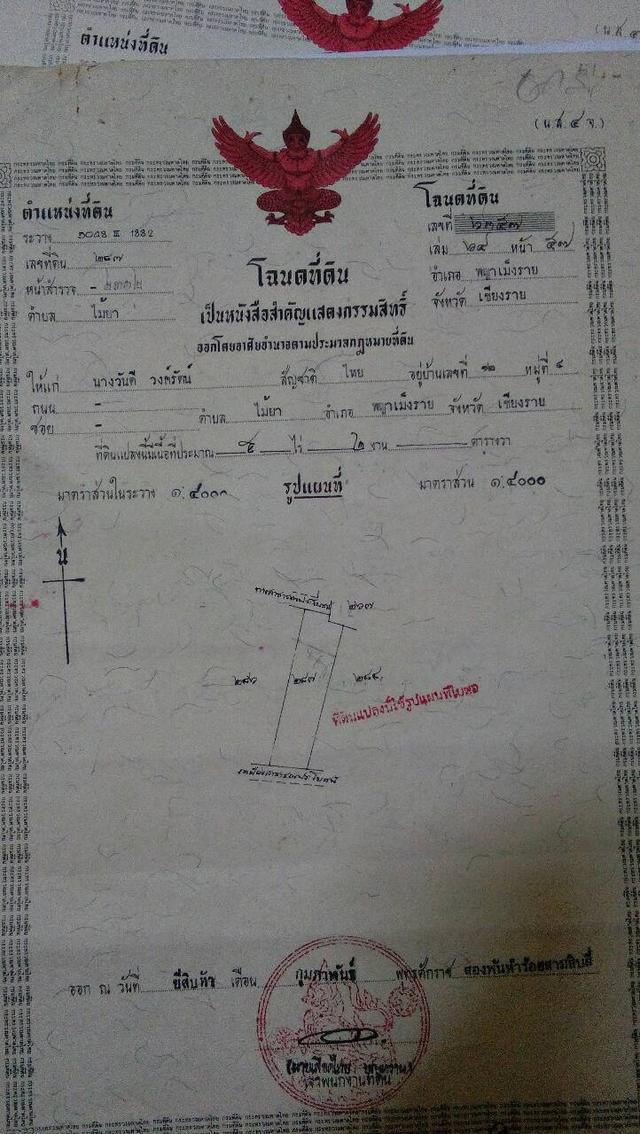 ตำแหน่งที่ดิน
(น.ส.๔ จ.)
ตำแหน่งที่ดิน
ระวาง 5048 III 1882
เลขที่ดิน ๒๘๗
หน้าสำรวจ -
ตำบล ไม้ยา
โฉนดที่ดิน
เลขที่
เล่ม ๒๔ หน้า ๕๗
อำเภอ พญาเม็งราย
จังหวัด เชียงราย
โฉนดที่ดิน
เป็นหนังสือสำคัญแสดงกรรมสิทธิ์
ออกโดยอาศัยอำนาจตามประมวลกฎหมายที่ดิน
ให้แก่ นางวันดี วงค์รัตน์ สัญชาติ ไทย อยู่บ้านเลขที่ ๑๒ หมู่ที่ ๔
ถนน - ตำบล ไม้ยา อำเภอ พญาเม็งราย จังหวัด เชียงราย
ซอย -
ที่ดินแปลงนี้มีเนื้อที่ประมาณ ไร่ ๒ งาน ตารางวา
มาตราส่วนในระวาง ๑:๔๐๐๐ รูปแผนที่ มาตราส่วน ๑:๔๐๐๐
น
ทางสาธารณประโยชน์ ๒๖๗
๒๘๖ ๒๘๗ ๒๘๘
ที่ดินแปลงนี้ใช้รูปแผนที่ใบต่อ
เหมืองสาธารณประโยชน์
ออก ณ วันที่ ยี่สิบห้า เดือน กุมภาพันธ์ พุทธศักราช สองพันห้าร้อยสามสิบสี่
เจ้าพนักงานที่ดิน